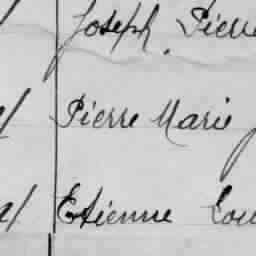 Joseph Pierre
Pierre Marie
Etienne Lou